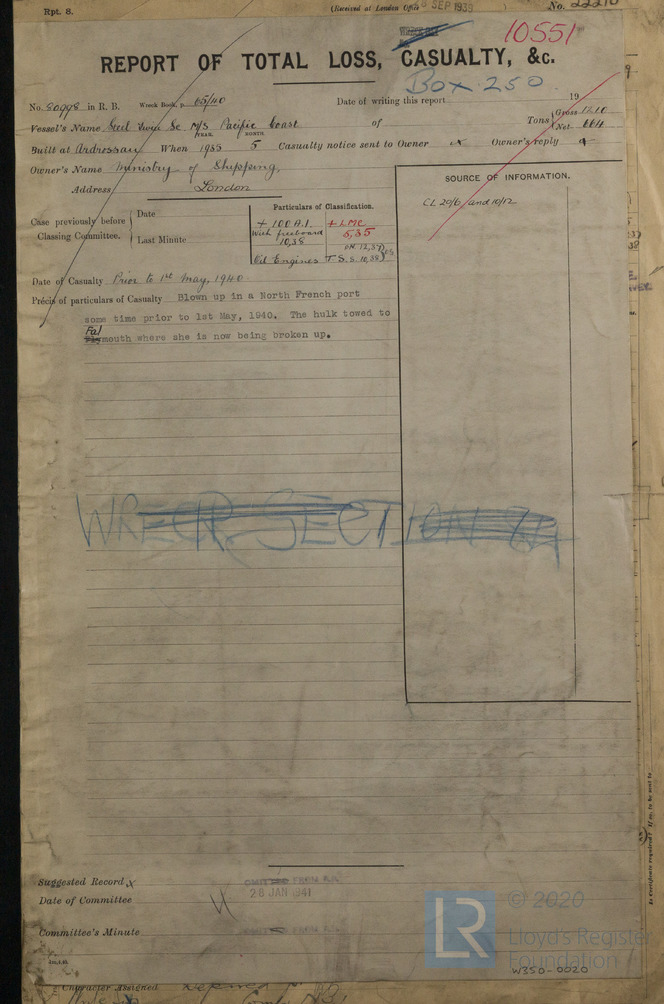 Rpt. 8.
(Received at London Office SEP 1939
No. 22210
10551
REPORT OF TOTAL LOSS, CASUALTY, &c.
Box 250
No. 80998 in R. B. Wreck Book, p. 65/40 Date of writing this report 19
Vessel's Name M/S Pacific Coast of Tons Gross 1210
YEAR. MONTH Net 664
Built at Ardrossan When 1935 5 Casualty notice sent to Owner x Owner's reply x
Owner's Name Ministry of Shipping,
Address London
SOURCE OF INFORMATION.
CL 20/6 and 10/12
Particulars of Classification.
Case previously before Classing Committee. Date
Last Minute
+ 100 A.1. + LMC
With freeboard 5,35
10,38
Oil Engines T.S. S. 10,38
Date of Casualty Prior to 1st May, 1940.
Précis of particulars of Casualty Blown up in a North French port
some time prior to 1st May, 1940. The hulk towed to
Fal
mouth where she is now being broken up.
WRECK SECTION
Suggested Record x
OMITTED FROM R.B.
28 JAN 1941
Date of Committee
Committee's Minute
OMITTED FROM R.B.
LR
© 2020
Lloyd's Register
Foundation
W350-0020
Character Assigned